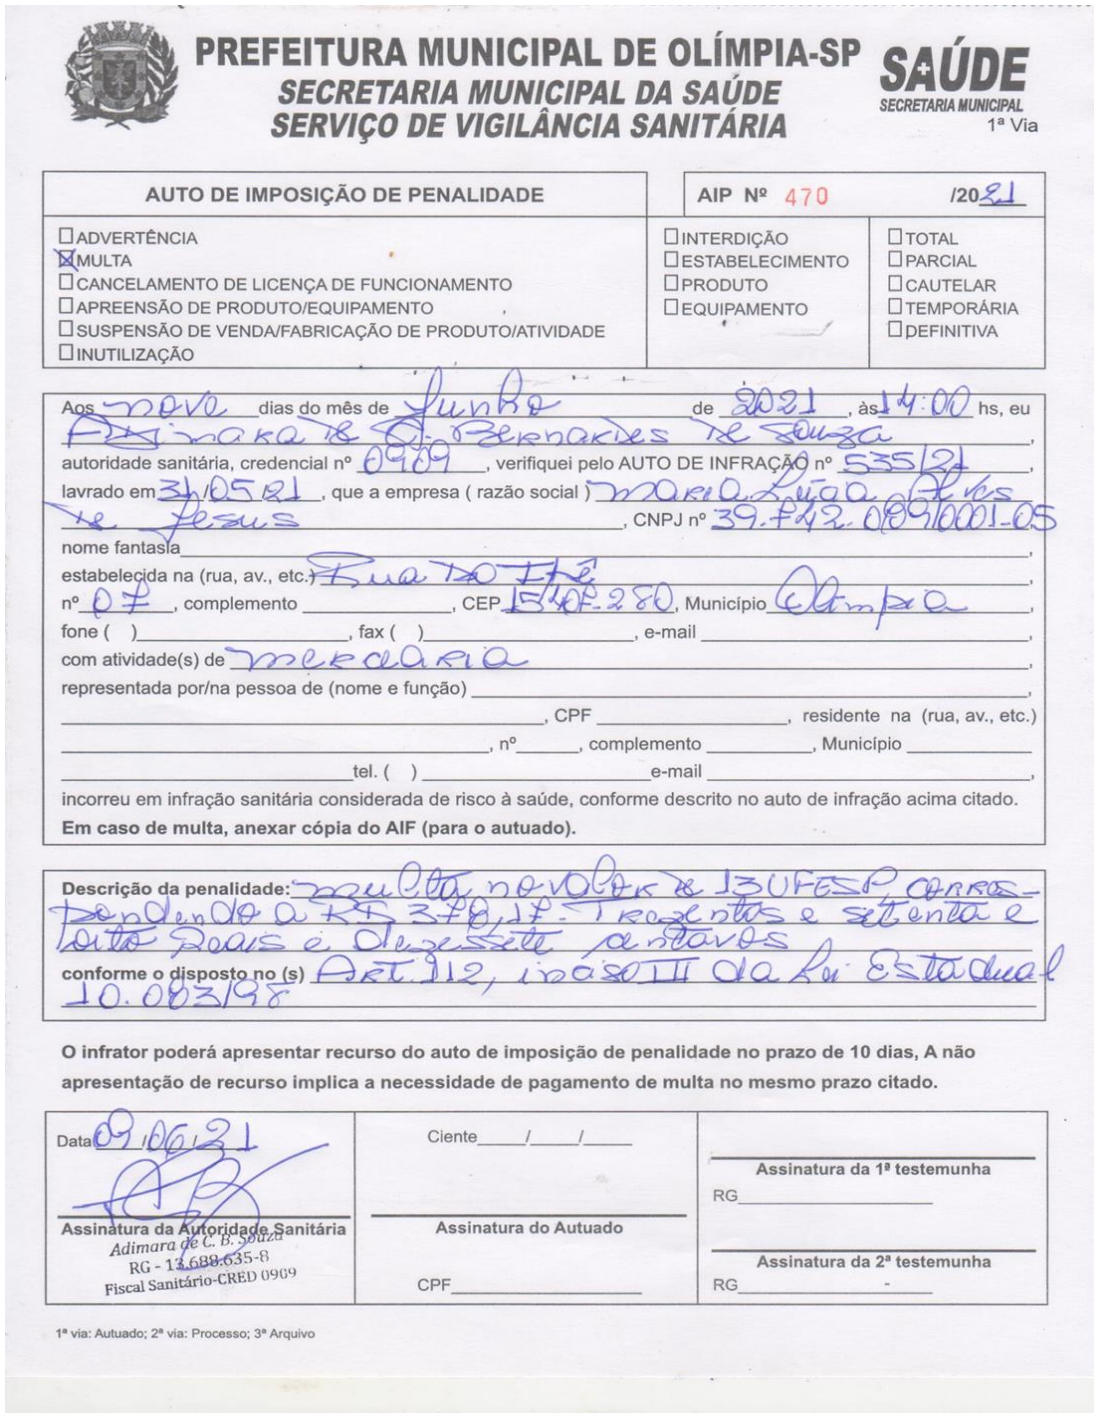 PREFEITURA MUNICIPAL DE OLÍMPIA-SP
SECRETARIA MUNICIPAL DA SAÚDE
SERVIÇO DE VIGILÂNCIA SANITÁRIA
SAÚDE
SECRETARIA MUNICIPAL
1ª Via
AUTO DE IMPOSIÇÃO DE PENALIDADE
AIP Nº 470 /2021
ADVERTÊNCIA
MULTA
CANCELAMENTO DE LICENÇA DE FUNCIONAMENTO
APREENSÃO DE PRODUTO/EQUIPAMENTO
SUSPENSÃO DE VENDA/FABRICAÇÃO DE PRODUTO/ATIVIDADE
INUTILIZAÇÃO
INTERDIÇÃO
ESTABELECIMENTO
PRODUTO
EQUIPAMENTO
TOTAL
PARCIAL
CAUTELAR
TEMPORÁRIA
DEFINITIVA
Aos nove dias do mês de Junho de 2021, às 14:00 hs, eu
Adimara de C. Bernardes de Souza,
autoridade sanitária, credencial nº 0909, verifiquei pelo AUTO DE INFRAÇÃO nº 535/21,
lavrado em 31/05/21, que a empresa ( razão social ) Maria Luiza Alves
de Jesus, CNPJ nº 39.742.089/0001-05
nome fantasia,
estabelecida na (rua, av., etc.) Rua do Ipê,
nº 07, complemento, CEP 15407-280, Município Olímpia,
fone ( ), fax ( ), e-mail,
com atividade(s) de mercearia,
representada por/na pessoa de (nome e função),
, CPF, residente na (rua, av., etc.)
, nº, complemento, Município
tel. ( ) e-mail,
incorreu em infração sanitária considerada de risco à saúde, conforme descrito no auto de infração acima citado.
Em caso de multa, anexar cópia do AIF (para o autuado).
Descrição da penalidade: multa no valor de 13 UFESP, corres-
pondendo a R$ 378,17 - Trezentos e setenta e
oito Reais e dezessete centavos
conforme o disposto no (s) Art. 112, inciso III da Lei Estadual
10.083/98
O infrator poderá apresentar recurso do auto de imposição de penalidade no prazo de 10 dias, A não
apresentação de recurso implica a necessidade de pagamento de multa no mesmo prazo citado.
Data 09/06/21
Assinatura da Autoridade Sanitária
Adimara de C. B. Souza
RG - 13.688.635-8
Fiscal Sanitário-CRED 0909
Ciente / /
Assinatura do Autuado
CPF
Assinatura da 1ª testemunha
RG
Assinatura da 2ª testemunha
RG
1ª via: Autuado; 2ª via: Processo; 3ª Arquivo